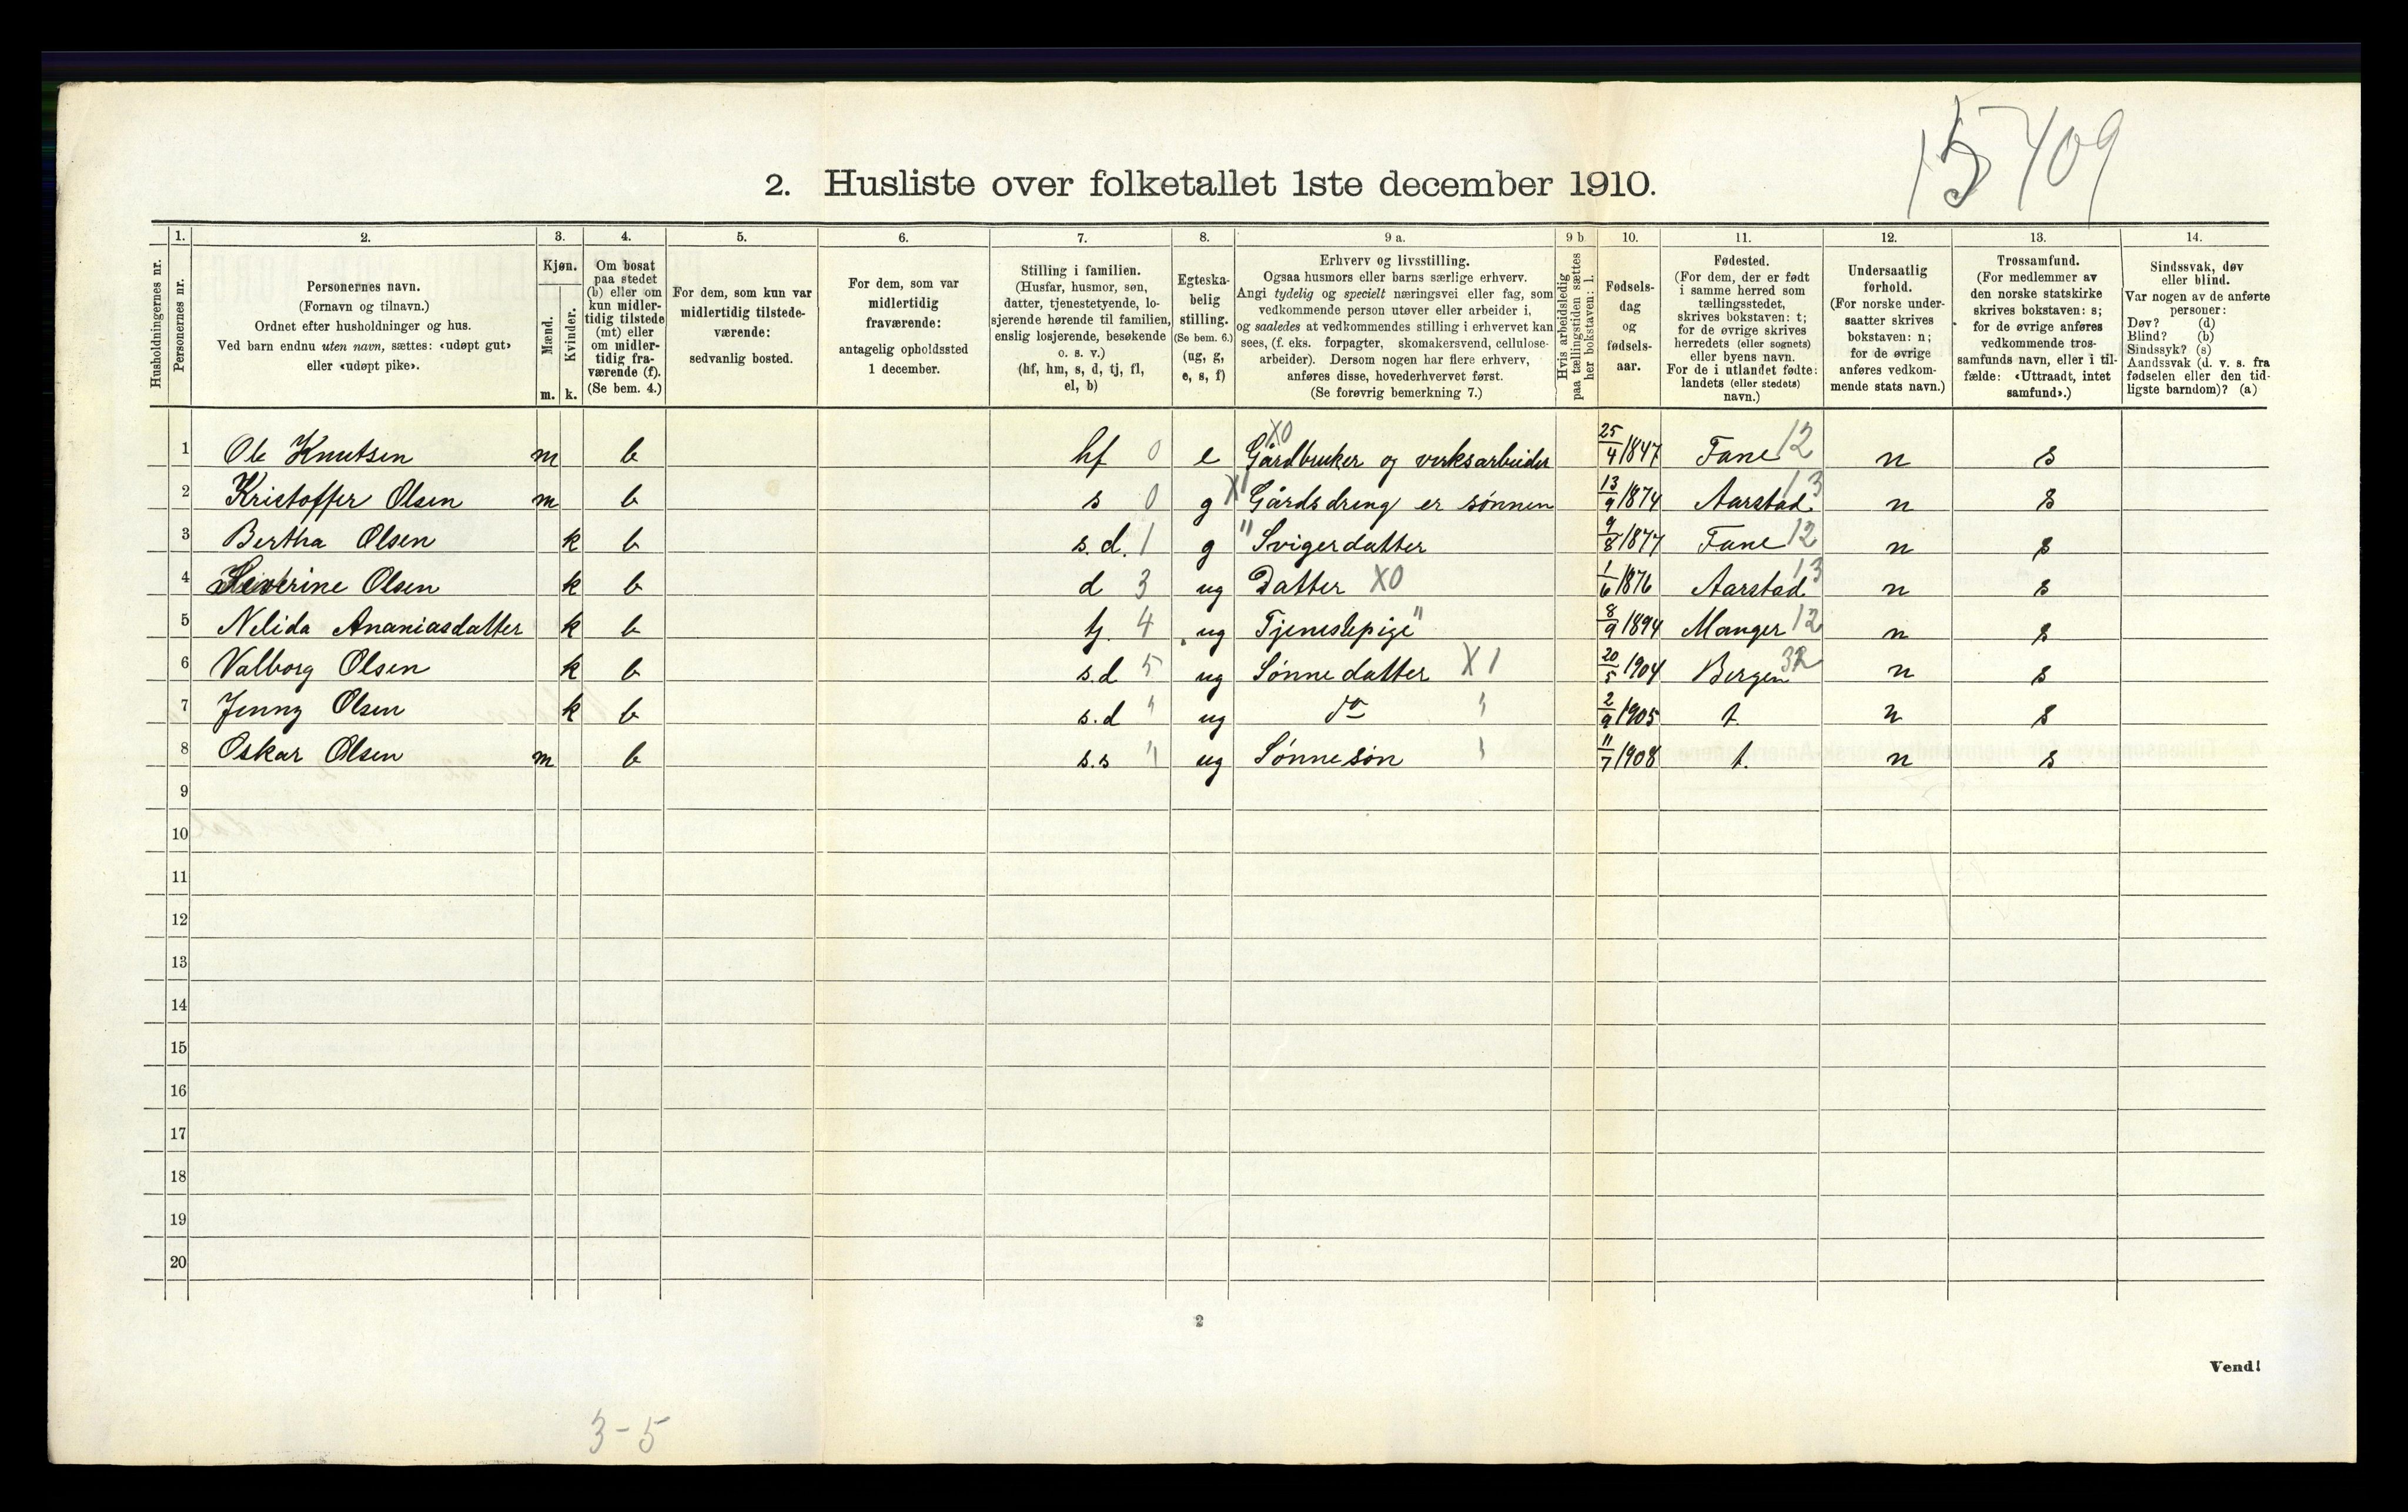 15 409
2. Husliste over folketallet 1ste december 1910.
Husholdningernes nr.
1. Personernes nr.
2. Personernes navn. (Fornavn og tilnavn.) Ordnet efter husholdninger og hus. Ved barn endnu uten navn, sættes: «udøpt gut» eller «udøpt pike».
3. Kjøn. Mænd. m. Kvinder. k.
4. Om bosat paa stedet (b) eller om kun midlertidig tilstede (mt) eller om midlertidig fraværende (f). (Se bem. 4.)
5. For dem, som kun var midlertidig tilstedeværende: sedvanlig bosted.
6. For dem, som var midlertidig fraværende: antagelig opholdssted 1 december.
7. Stilling i familien. (Husfar, husmor, søn, datter, tjenestetyende, losjerende hørende til familien, enslig losjerende, besøkende o. s. v.) (hf, hm, s, d, tj, fl, el, b)
8. Egteskabelig stilling. (Se bem. 6.) (ug, g, e, s, f)
9 a. Erhverv og livsstilling. Ogsaa husmors eller barns særlige erhverv. Angi tydelig og specielt næringsvei eller fag, som vedkommende person utøver eller arbeider i, og saaledes at vedkommendes stilling i erhvervet kan sees, (f. eks. forpagter, skomakersvend, cellulosearbeider). Dersom nogen har flere erhverv, anføres disse, hovederhvervet først. (Se forøvrig bemerkning 7.)
9 b Hvis arbeidsledig paa tællingstiden sættes her bokstaven: l.
10. Fødselsdag og fødselsaar.
11. Fødested. (For dem, der er født i samme herred som tællingsstedet, skrives bokstaven: t; for de øvrige skrives herredets (eller sognets) eller byens navn. For de i utlandet fødte: landets (eller stedets) navn.)
12. Undersaatlig forhold. (For norske undersaatter skrives bokstaven: n; for de øvrige anføres vedkommende stats navn.)
13. Trossamfund. (For medlemmer av den norske statskirke skrives bokstaven: s; for de øvrige anføres vedkommende trossamfunds navn, eller i tilfælde: «Uttraadt, intet samfund».)
14. Sindssvak, døv eller blind. Var nogen av de anførte personer: Døv? (d) Blind? (b) Sindssyk? (s) Aandssvak (d. v. s. fra fødselen eller den tidligste barndom)? (a)
1 Ole Knutsen m b hf 0 e X0 Gårdbruker og verksarbeider 25/4 1847 Fane 12 n s
2 Kristoffer Olsen m b s 0 g X1 Gårdsdreng er sönnen 13/9 1874 Aarstad 13 n s
3 Bertha Olsen k b s. d. 1 g " Svigerdatter 9/8 1877 Fane 12 n s
4 Severine Olsen k b d 3 ug Datter X0 1/6 1876 Aarstad 13 n s
5 Nelida Ananiasdatter k b tj. 4 ug Tjenestepige " 8/9 1894 Manger 12 n s
6 Valborg Olsen k b s.d 5 ug Sönnedatter X1 20/5 1904 Bergen 32 n s
7 Jenny Olsen k b s.d " ug do " 2/9 1905 t. n s
8 Oskar Olsen m b s.s " ug Sönnesön " 11/7 1908 t. n s
9
10
11
12
13
14
15
16
17
18
19
20
2
Vend!
3-5